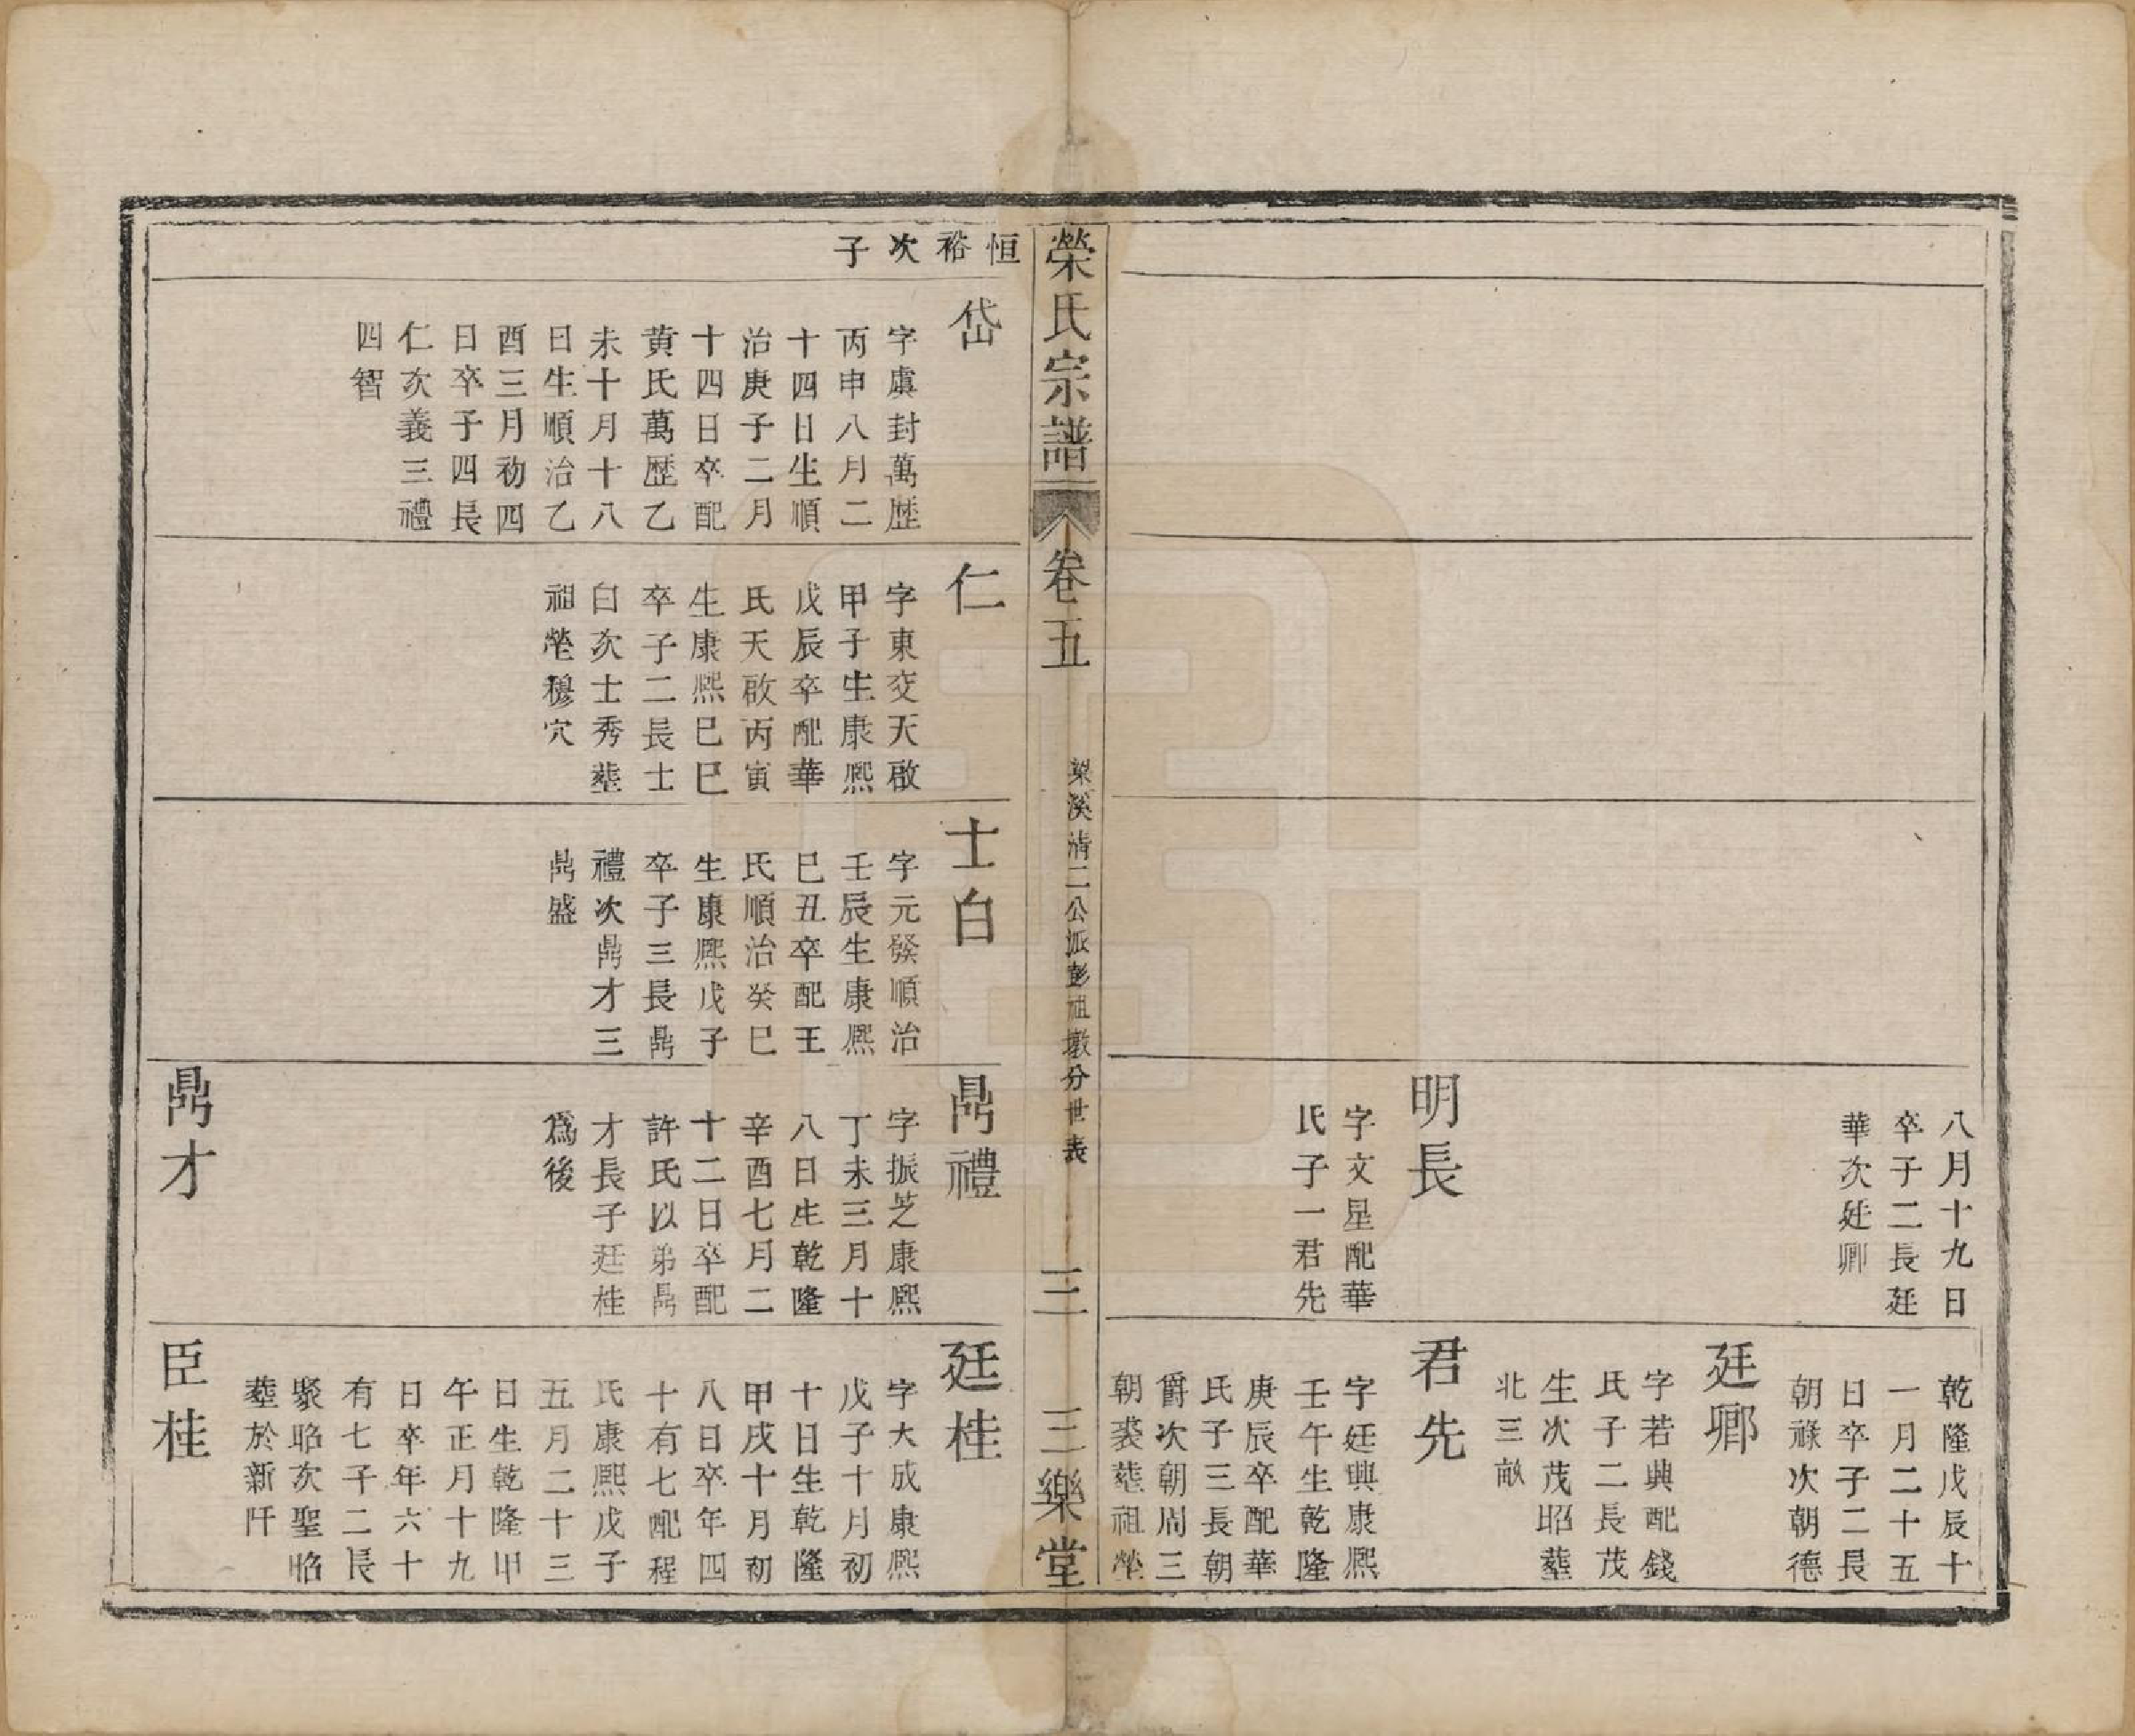 八月十九日
卒子二長廷
華次廷卿
明長
字文星配華
氏子一君先
乾隆戊辰十
一月二十五
日卒子二長
朝祿次朝德
廷卿
字若典配錢
氏子二長茂
生次茂昭塟
北三畝
君先
字廷興康熙
壬午生乾隆
庚辰卒配華
氏子三長朝
爵次朝周三
朝裘塟祖塋
榮氏宗譜
卷五
梁溪清二公派彭祖墩分世表
三
三樂堂
恒裕次子
岱
字虞封萬歷
丙申八月二
十四日生順
治庚子二月
十四日卒配
黄氏萬歷乙
未十月十八
日生順治乙
酉三月初四
日卒子四長
仁次義三禮
四智
仁
字東交天啟
甲子生康熙
戊辰卒配華
氏天啟丙寅
生康熙巳巳
卒子二長士
白次士秀塟
祖塋穆穴
士白
字元發順治
壬辰生康熙
巳丑卒配王
氏順治癸巳
生康熙戊子
卒子三長鼎
禮次鼎才三
鼎盛
鼎禮
字振芝康熙
丁未三月十
八日生乾隆
辛酉七月二
十二日卒配
許氏以弟鼎
才長子廷桂
爲後
鼎才
廷桂
字大成康熙
戊子十月初
十日生乾隆
甲戌十月初
八日卒年四
十有七配程
氏康熙戊子
五月二十三
日生乾隆甲
午正月十九
日卒年六十
有七子二長
聚昭次聖昭
塟於新阡
臣桂